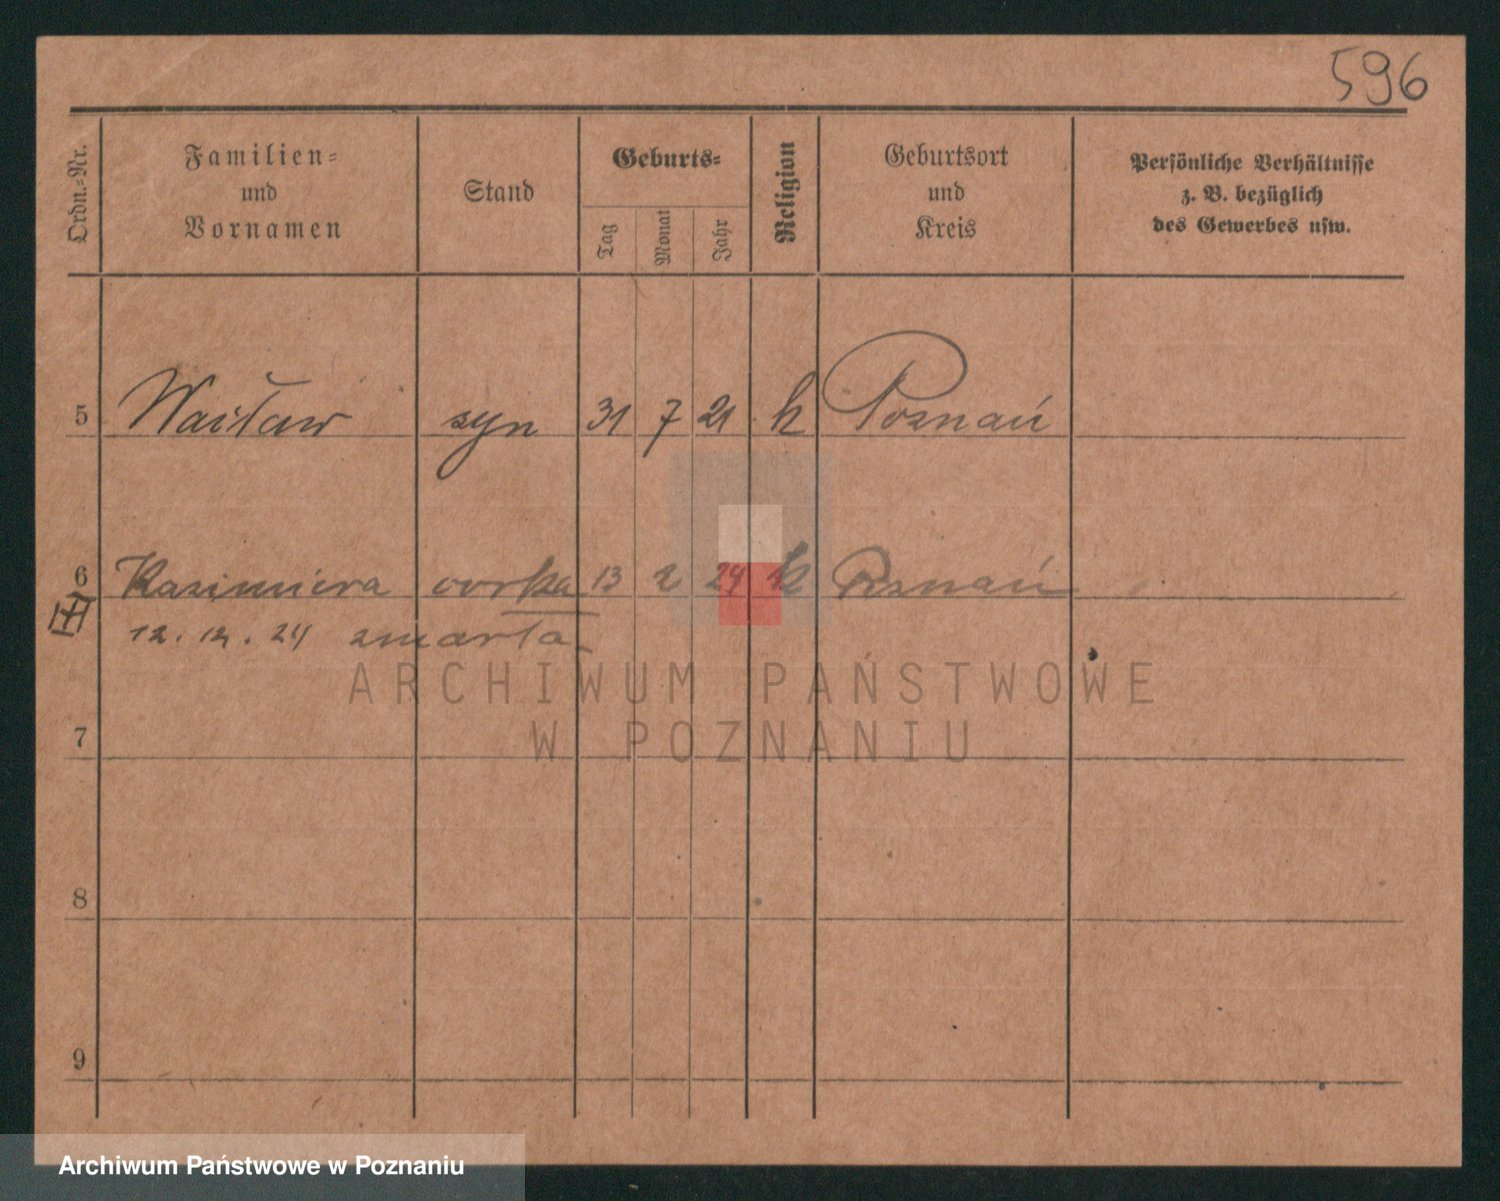 596
Ordn.-Nr.
Familien-
und
Vornamen
Stand
Geburts-
Tag
Monat
Jahr
Religion
Geburtsort
und
Kreis
Persönliche Verhältnisse
z. B. bezüglich
des Gewerbes usw.
5 Wacław syn 31 7 21 k Poznań
6 Kazimiera córka 13 2 24 k Poznań
12. 12. 24 zmarła
ARCHIWUM PAŃSTWOWE
W POZNANIU
7
8
9
Archiwum Państwowe w Poznaniu